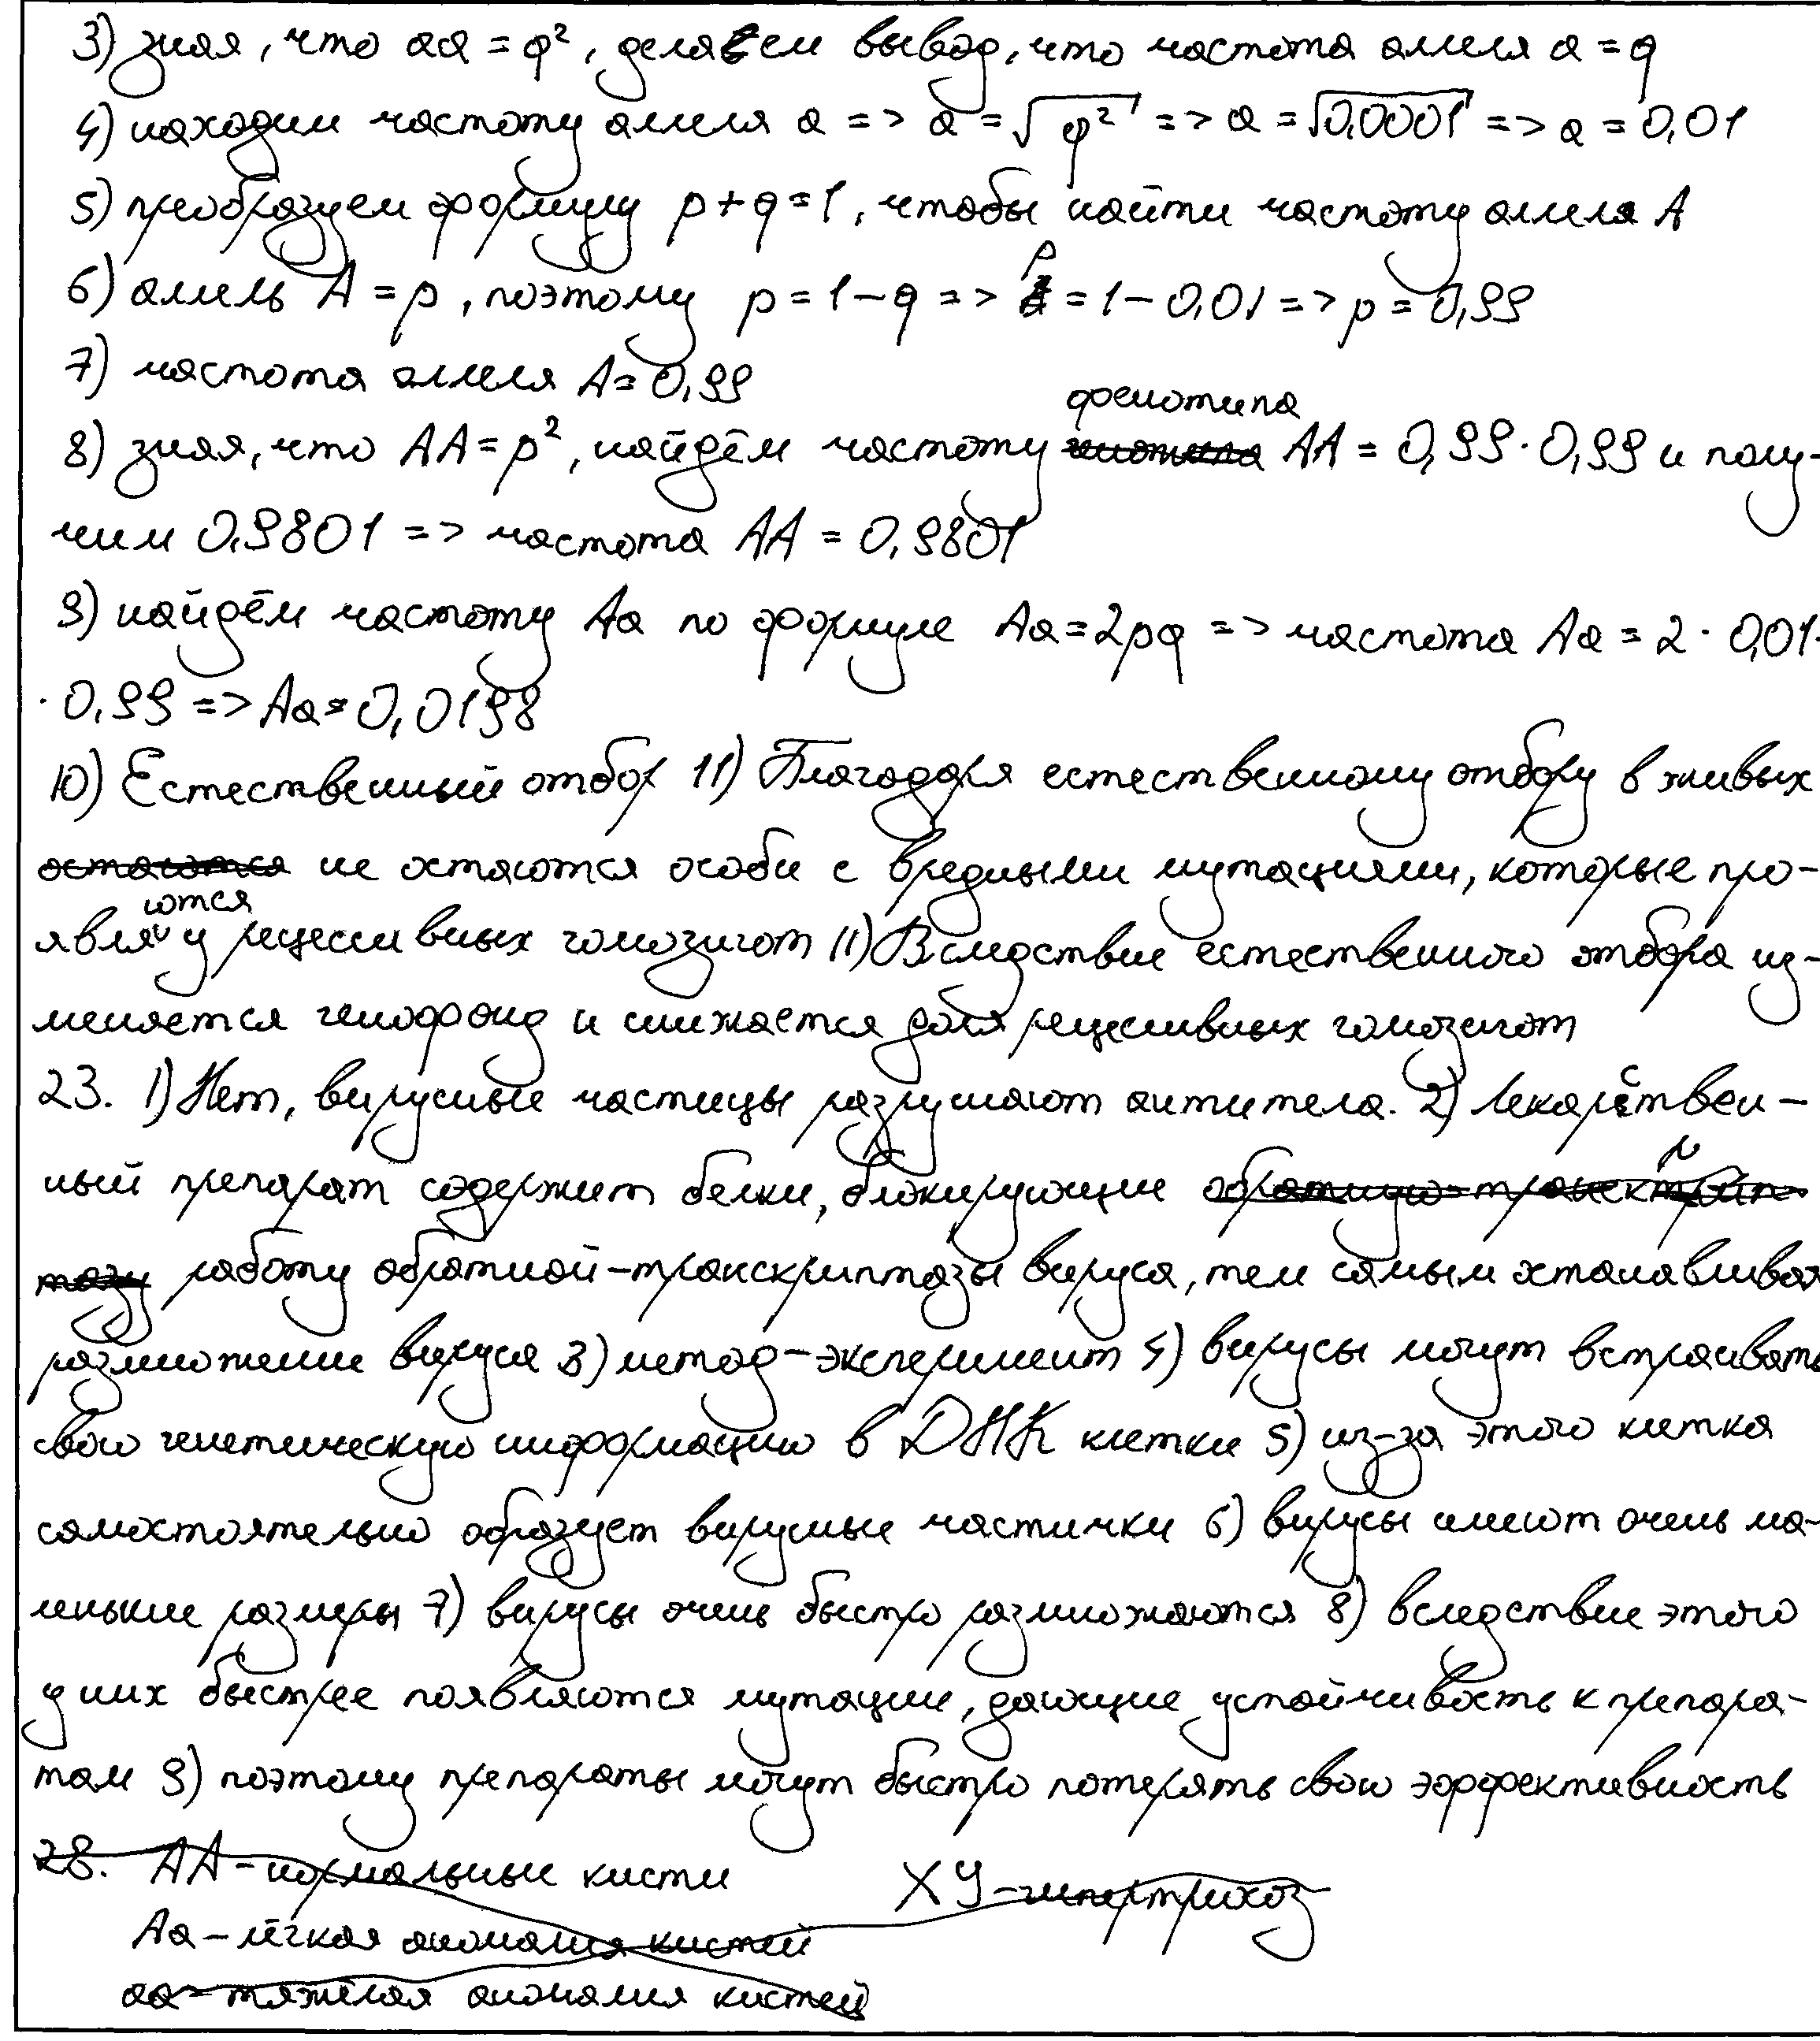 3) зная, что aa = q², делаем вывод, что частота аллеля a = q
4) находим частоту аллеля a => a = √q² => a = √0,0001 => a = 0,01
5) преобразуем формулу p+q=1, чтобы найти частоту аллеля A
6) аллель A = p, поэтому p = 1 – q => p = 1 – 0,01 => p = 0,99
7) частота аллеля A = 0,99
8) зная, что AA = p², найдём частоту фенотипа AA = 0,99 · 0,99 и полу-
чим 0,9801 => частота AA = 0,9801
9) найдём частоту Aa по формуле Aa = 2pq => частота Aa = 2 · 0,01 ·
· 0,99 => Aa = 0,0198
10) Естественный отбор 11) Благодаря естественному отбору в живых
остаются не остаются особи с вредными мутациями, которые про-
являются у рецессивных гомозигот 11) Вследствие естественного отбора из-
меняется генофонд и снижается доля рецессивных гомозигот
23. 1) Нет, вирусные частицы разрушают антитела. 2) Лекарствен-
ный препарат содержит белки, блокирующие обратную-транскрип-
тазу работу обратной-транскриптазы вируса, тем самым останавливая
размножение вируса 3) метод-эксперимент 4) вирусы могут встраивать
свою генетическую информацию в ДНК клетки 5) из-за этого клетка
самостоятельно образует вирусные частички 6) вирусы имеют очень ма-
ленькие размеры 7) вирусы очень быстро размножаются 8) вследствие этого
у них быстрее появляются мутации, дающие устойчивость к препара-
там 9) поэтому препараты могут быстро потерять свою эффективность
28. AA – нормальные кисти XY – гипертрихоз
Aa – лёгкая аномалия кистей
aa – тяжёлая аномалия кистей